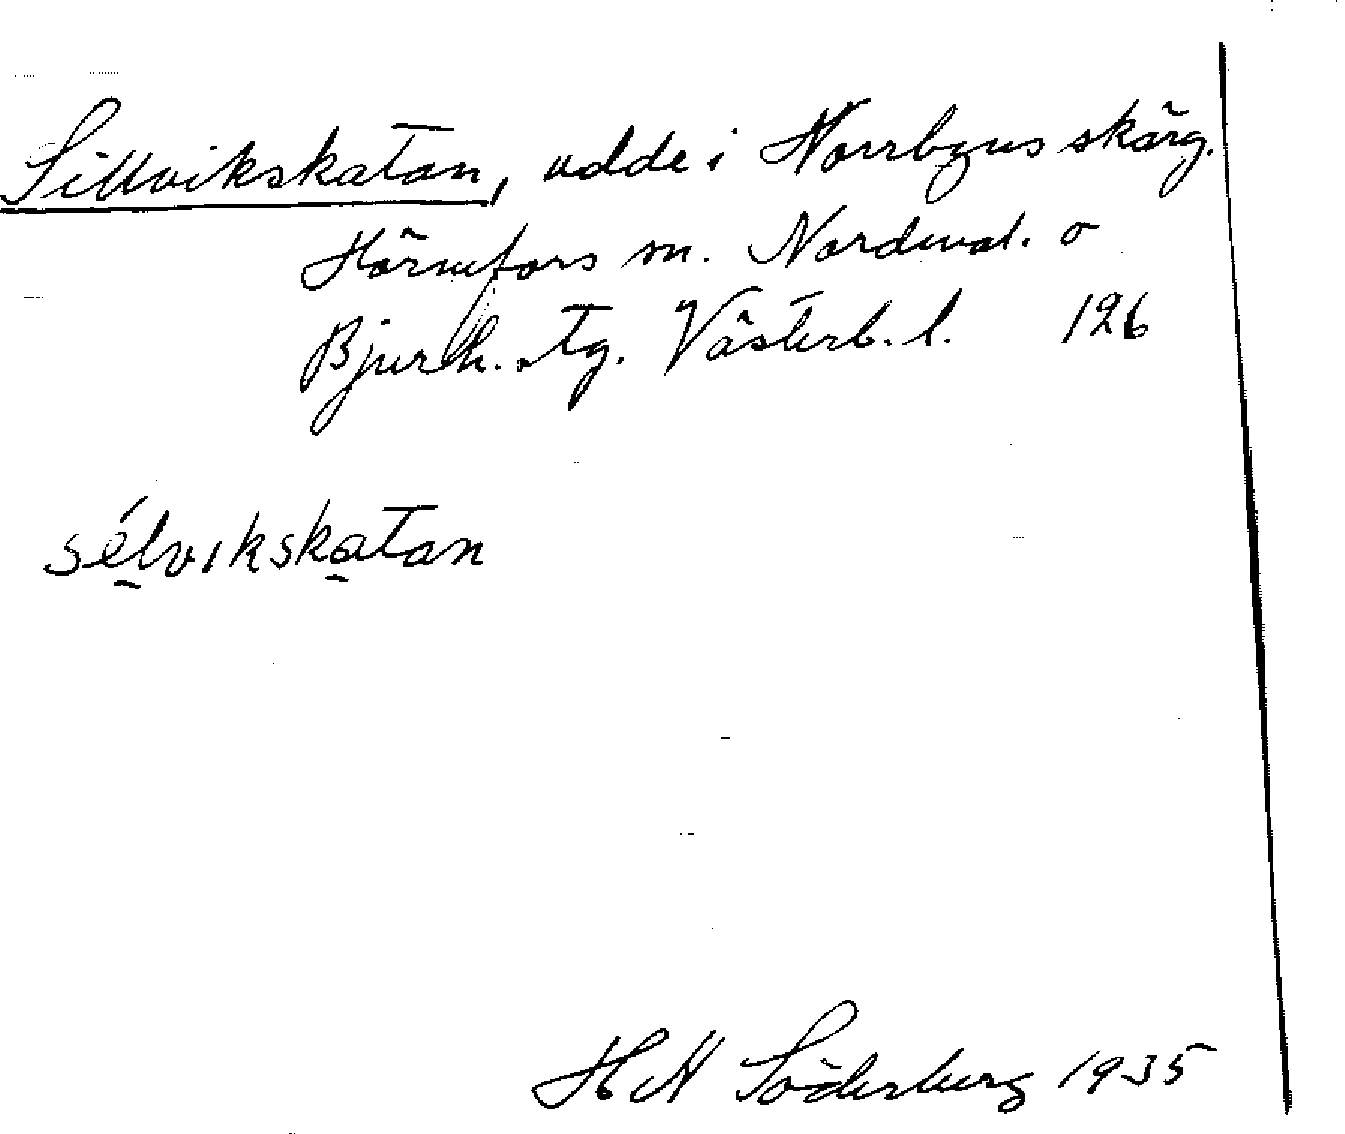 Sillvikskatan, udde i Norrbyns skärg.
Hörnefors sn. Nordmal. o
Bjurh. tg. Västerb. l. 126
sélvikskatan
H N Söderberg 1935